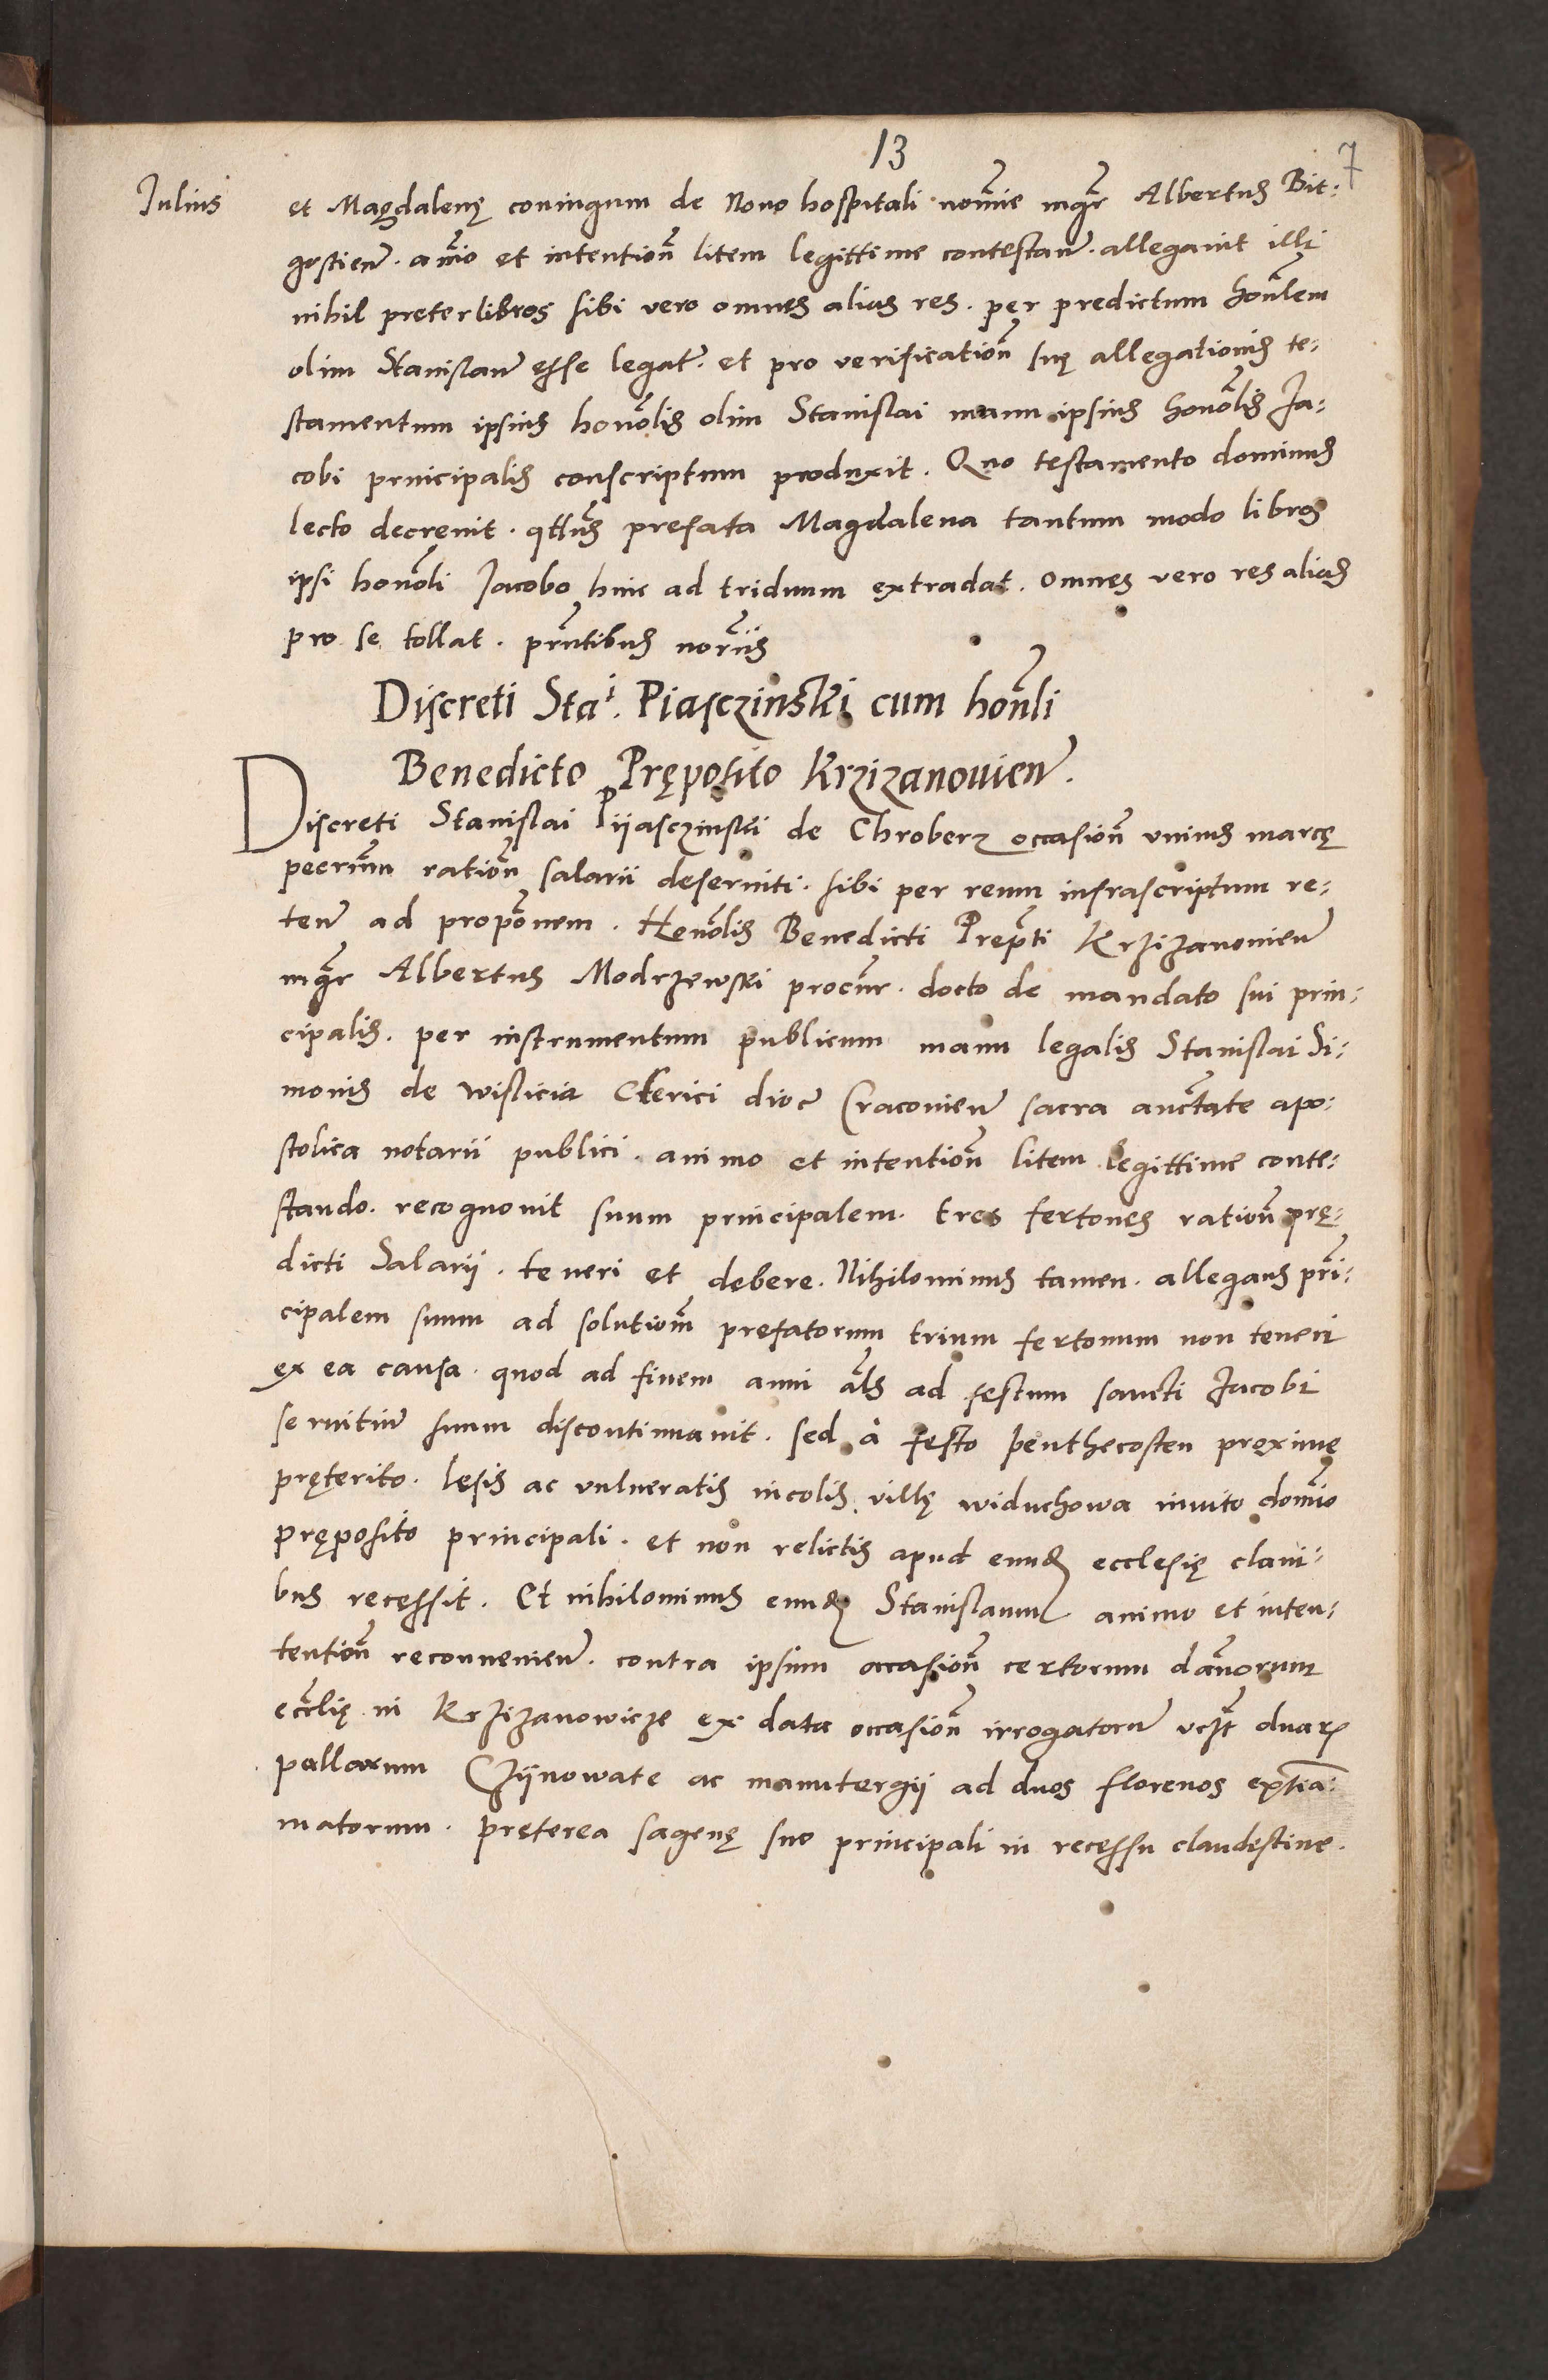 13
7
Iulius
et Magdalenę coniugum de Nouo hospitali nomīe mgr̄ Albertus Bit:
gostien̄. aīo et intentiōn litem legittime contestan̄. allegauit illi
nihil preter libros sibi vero omnes alias res. per predictum honl̄em
olim Stanislaū esse legat̄. et pro verificatiōn suę allegationis te:
stamentum ipsius honōlis olim Stanislai manu ipsius honōlis Ja:
cobi principalis conscriptum produxit. Quo testamento dominus
lecto decreuit. qtn̄s prefata Magdalena tantum modo libros
ipsi honōli Jacobo hinc ad triduum extradat. omnes vero res alias
pro se tollat. prn̄tibus noriis
Discreti Stai. Piasczinski cum honl̄i
Benedicto Pręposito Krzizanouien̄.
Discreti Stanislai Pijasczinski de Chroberz occasiōn vnius marcę
pecrūm ratiōn salarii deseruiti. sibi per reum infrascriptum re:
ten̄ ad propōnem. Honōlis Benedicti Prepti Krzizanouien̄
mgr̄ Albertus Modrzewski procur̄. docto de mandato sui prin:
cipalis. per instrumentum publicum manu legalis Stanislai Si:
monis de wislicia Clerici dioc̄ Cracouien̄ sacra auctāte apo:
stolica notarii publici. animo et intentiōn litem legittime conte:
stando. recognouit suum principalem. tres fertones ratiōn prę:
dicti Salarij. teneri et debere. Nihilominus tamen. allegans prī:
cipalem suum ad solutiōm prefatorum trium fertonum non teneri
ex ea causa. quod ad finem anni als̄ ad festum sancti Jacobi
seruitiū suum discontinuauit. sed à festo penthecosten proximę
pręterito. lęsis ac vulneratis incolis villę widuchowa inuito domīo
pręposito principali. et non relictis apud eundem ecclesię claui:
bus recessit. Et nihilominus eundem Stanislaum animo et inten:
tentiōn reconuenien̄. contra ipsum occasiōn certorum dānorum
eccl̄ię in Krzizanowicze ex data occasiōn irrogatorū vczt duarꝝ
pallarum Czijnowate ac manutergij ad duos florenos extīa:
matorum. preterea sagenę suo principali in recessu clandestine.